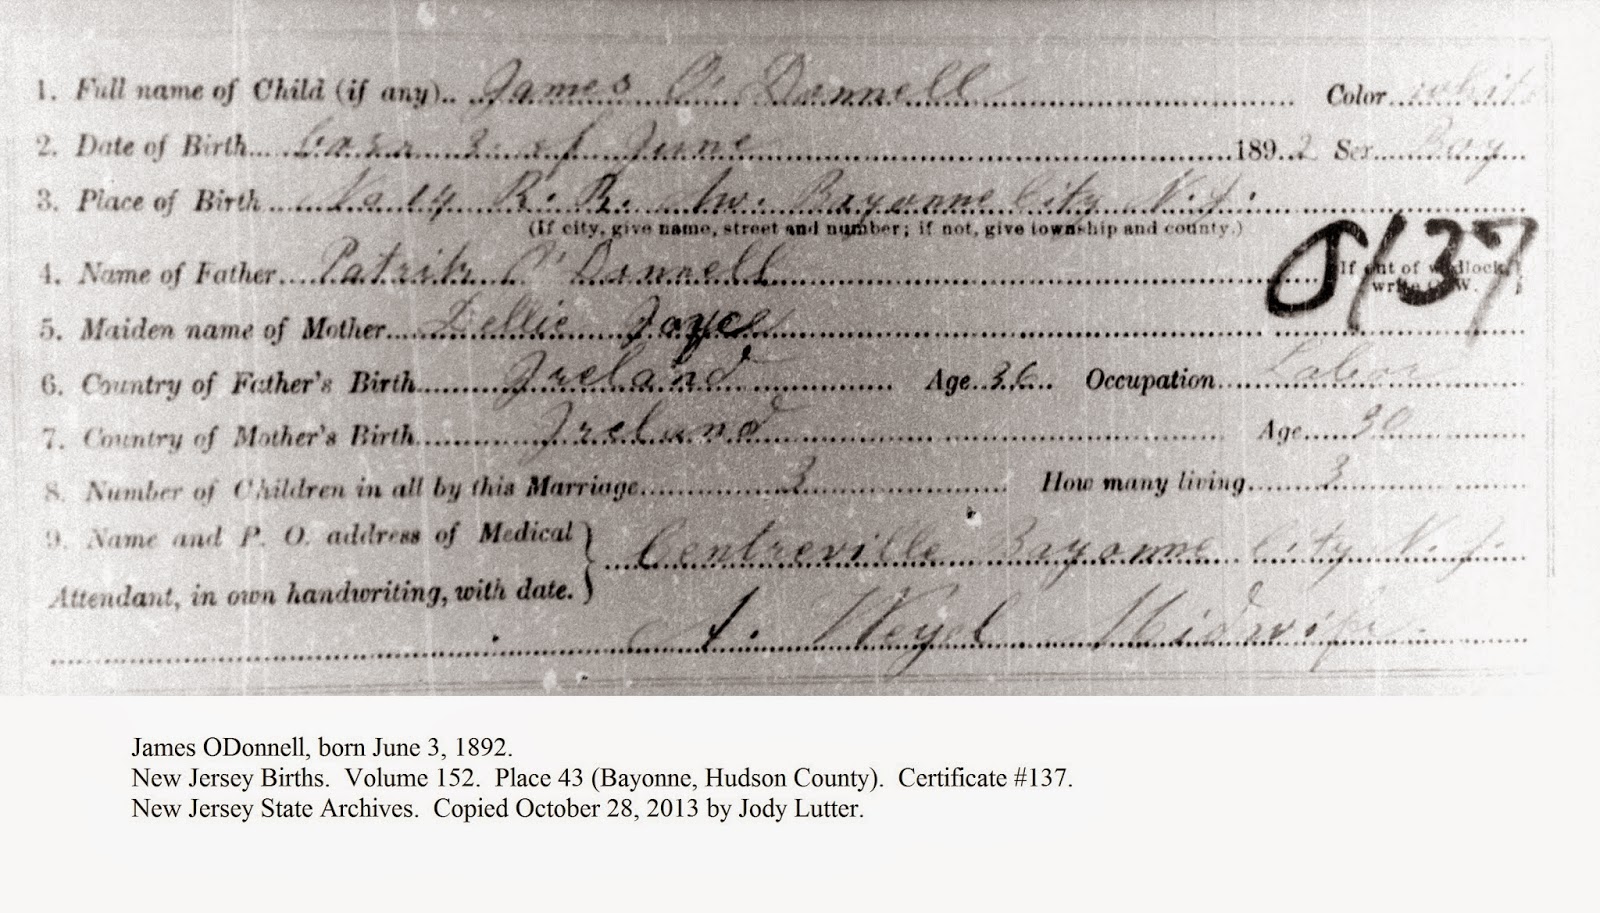 1. Full name of Child (if any).. James O'Donnell Color white
2. Date of Birth... Born 3 of June 1892 Sex Boy
3. Place of Birth No 14 R. R. Av. Bayonne City N.J.
(If city, give name, street and number; if not, give township and county.)
4. Name of Father... Patrik O'Donnell If out of wedlock,
write O. W.
O137
5. Maiden name of Mother... Dellie Joyce
6. Country of Father's Birth... Ireland Age 36 Occupation Labor
7. Country of Mother's Birth... Ireland Age 30
8. Number of Children in all by this Marriage 3 How many living 3
9. Name and P. O. address of Medical Centreville Bayonne City N. J.
Attendant, in own handwriting, with date.
A. Weyel Midwife.
James ODonnell, born June 3, 1892.
New Jersey Births. Volume 152. Place 43 (Bayonne, Hudson County). Certificate #137.
New Jersey State Archives. Copied October 28, 2013 by Jody Lutter.